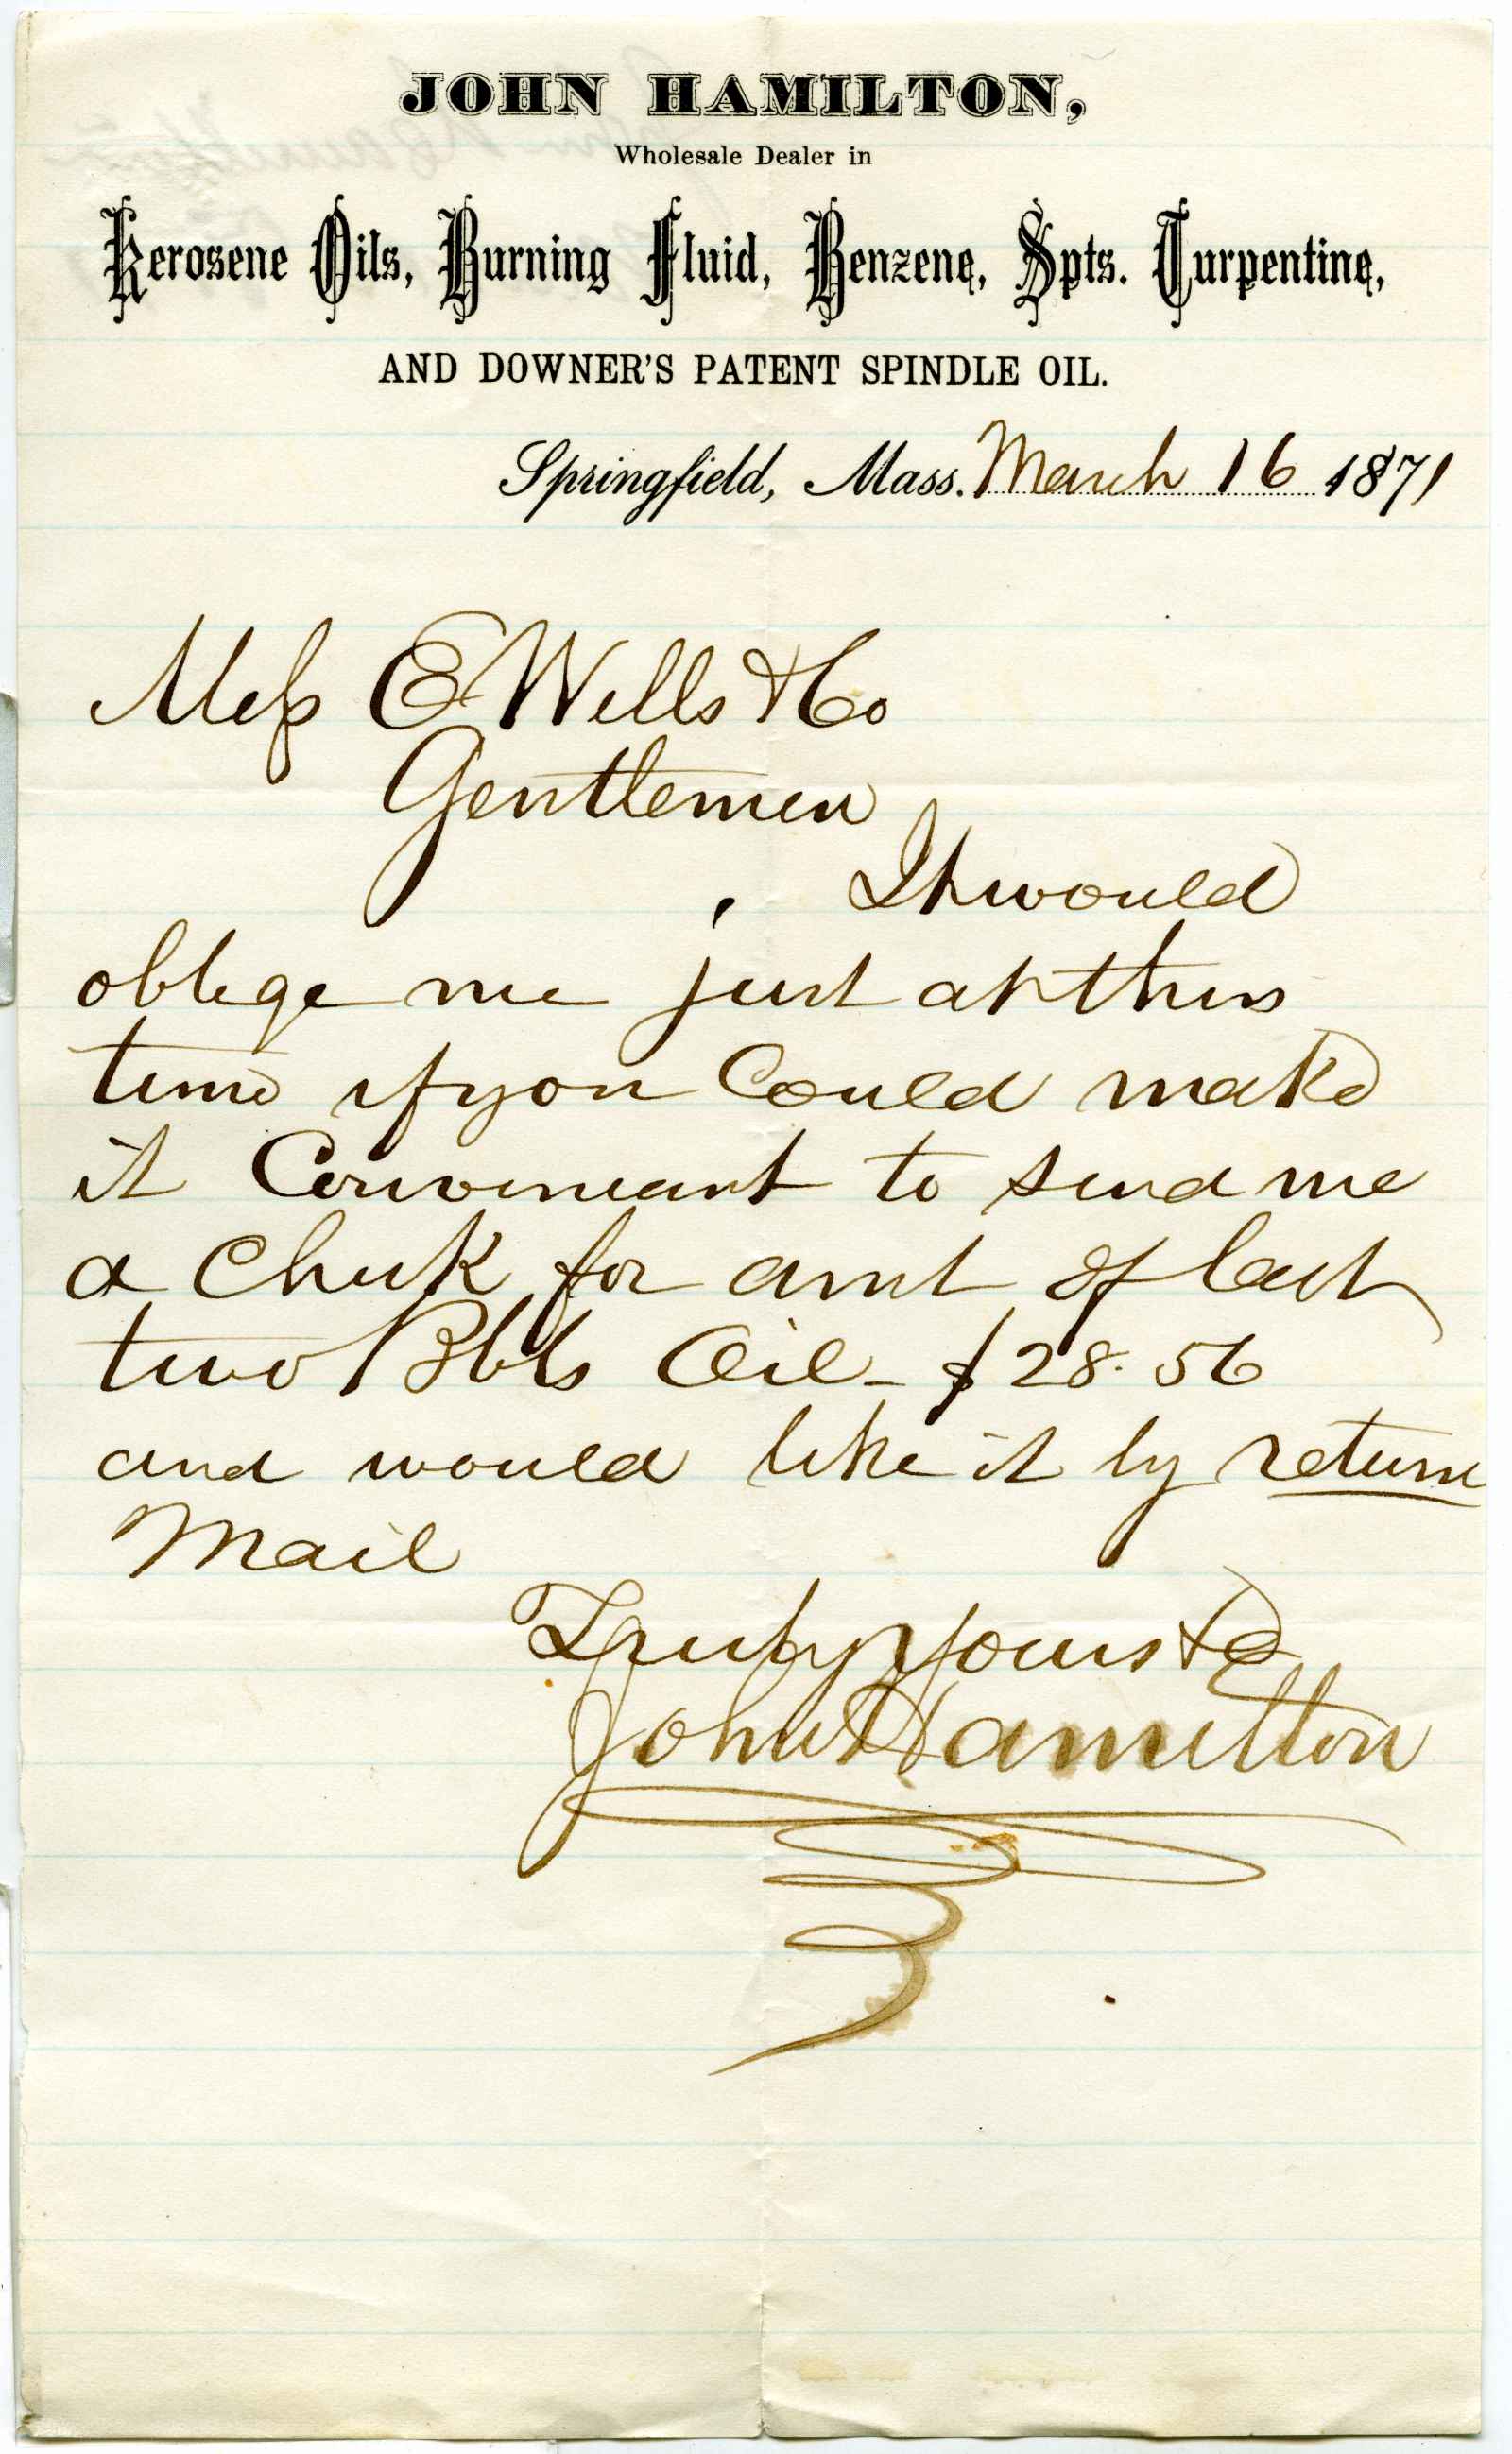 JOHN HAMILTON,
Wholesale Dealer in
Kerosene Oils, Burning Fluid, Benzene, Spts. Turpentine,
AND DOWNER'S PATENT SPINDLE OIL.
Springfield, Mass. March 16 1871
Mess E Wells & Co
Gentlemen
It would
oblege me just at this
time if you Could make
it Conveneant to send me
a Check for amt of last
two Bbls Oil - $28.56
and would like it by return
Mail
Truly Yours &c
John Hamilton